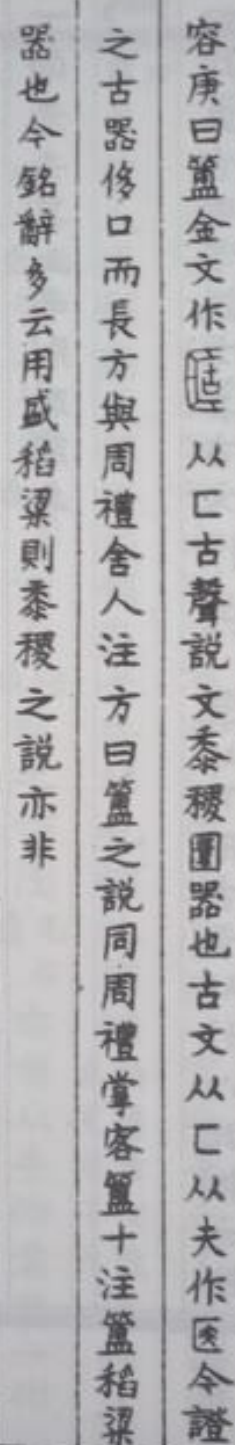 容庚曰簠金文作𠥑从匚古聲説文黍稷圜器也古文从匚从夫作医今證
之古器侈口而長方與周禮舍人注方曰簠之説同周禮掌客簠十注簠稻粱
器也今銘辭多云用盛稻粱則黍稷之説亦非